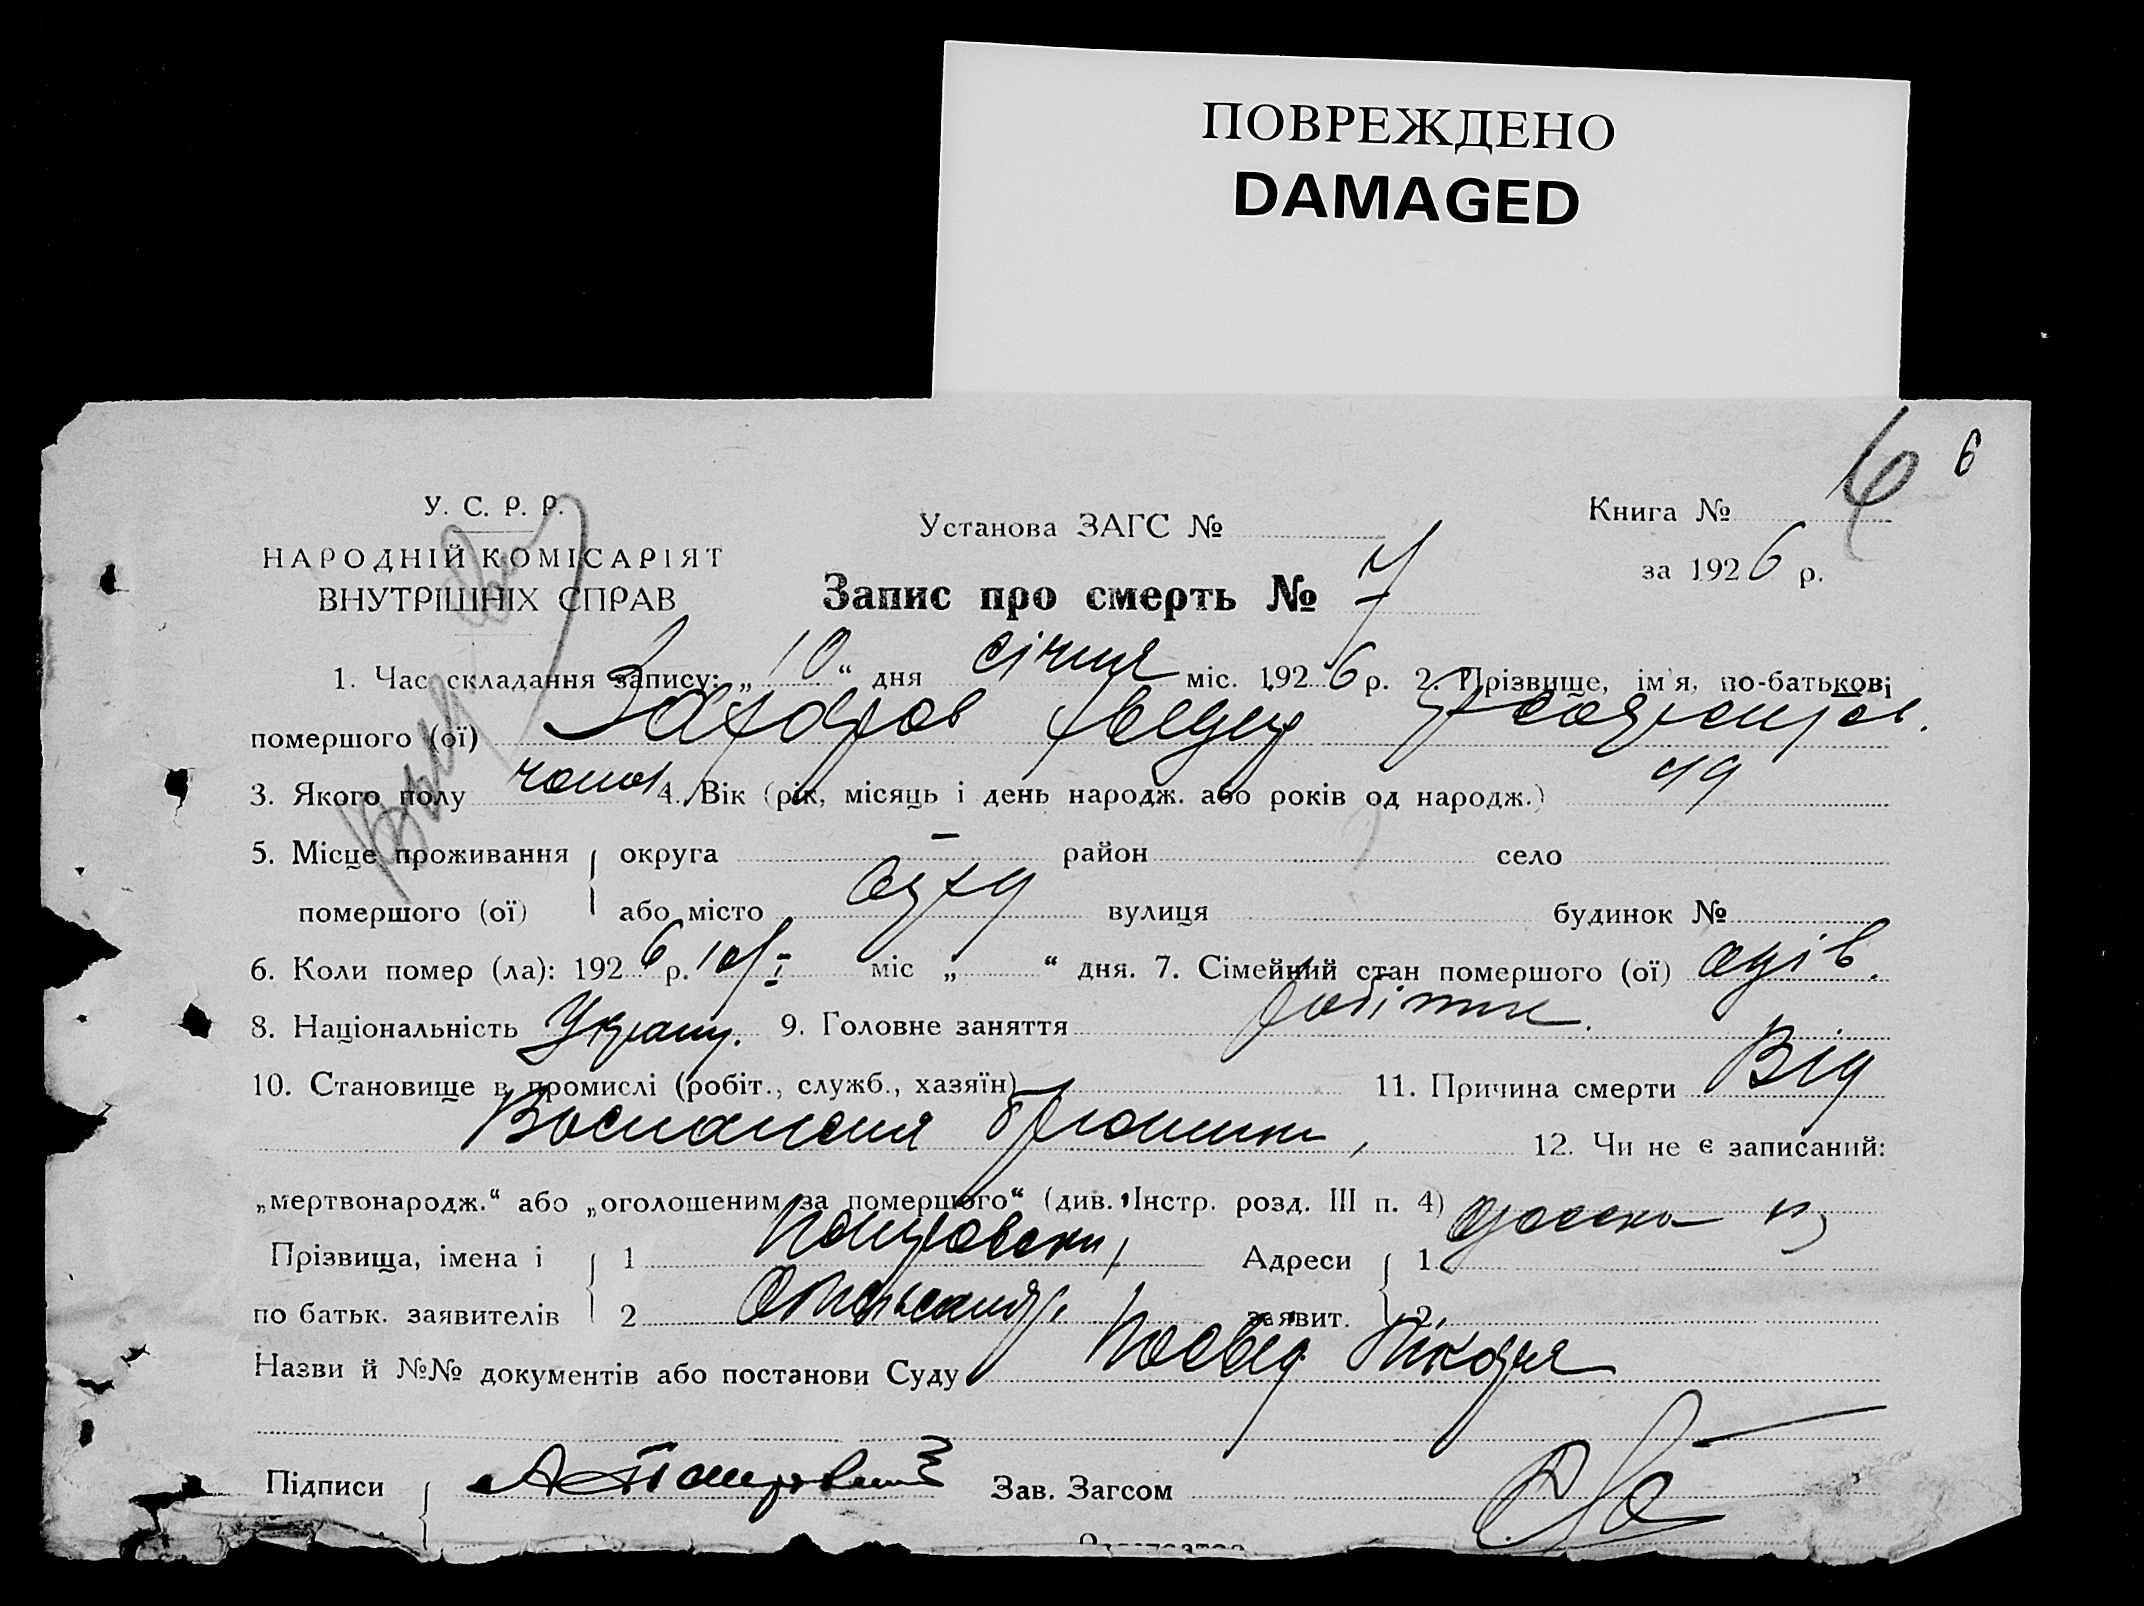 ПОВРЕЖДЕНО
DAMAGED
6
У. С. Р. Р.
НАРОДНІЙ КОМІСАРІЯТ
ВНУТРІШНІХ СПРАВ
Установа ЗАГС №
Запис про смерть № 7
Книга №
за 1926 р.
1. Час складання запису: „ 10 “ дня січня міс. 1926 р. 2. Прізвище, ім'я, по-батькові
помершого (ої) Захаров
3. Якого полу чолов 4. Вік (рік, місяць і день народж. або років од народж.) 49
5. Місце проживання округа – район село
помершого (ої) або місто вулиця будинок №
6. Коли помер (ла): 1926 р. 10/I міс „ “ дня. 7. Сімейний стан помершого (ої) одів.
8. Національність Украин. 9. Головне заняття робітник.
10. Становище в промислі (робіт., служб., хазяїн) 11. Причина смерти Від
Воспаления брюшины, 12. Чи не є записаний:
„мертвонародж.“ або „оголошеним за помершого“ (див. Інстр. розд. III п. 4)
Прізвища, імена і 1 Адреси 1
по батьк. заявителів 2 заявит. 2
Назви й №№ документів або постанови Суду Посвід Лікаря
Підписи Зав. Загсом